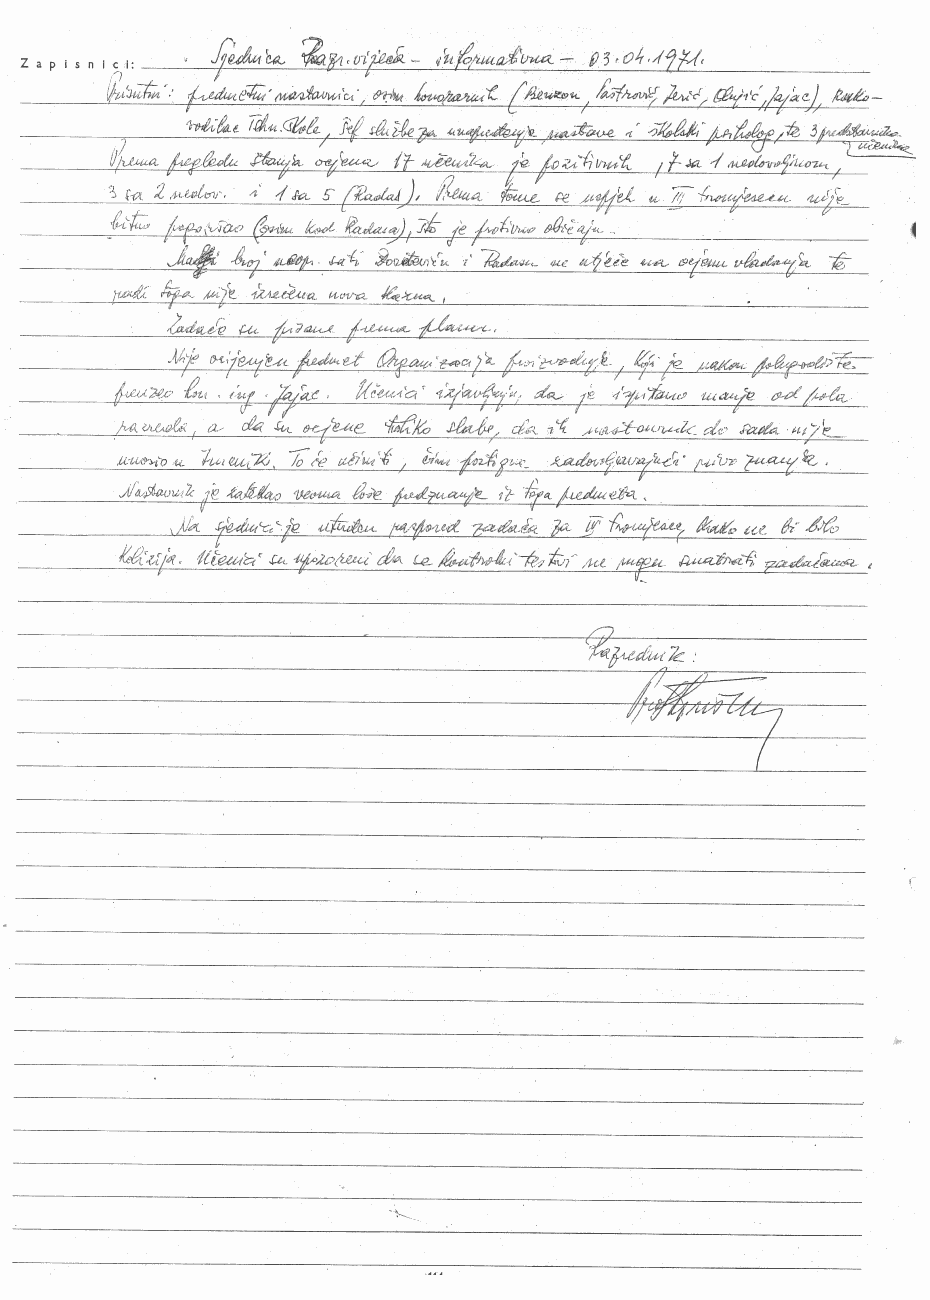 Zapisnici: Sjednica Razr. vijeća – informativna – 03.04.1971.
Prisutni: predmetni nastavnici, osim honorarnih (Benzon, Paštrović, Jerić, Olujić, Jajac), ruko-
vodilac Tehn. škole, šef službe za unapređenje nastave i školski psiholog, te 3 predstavnika
učenika
Prema pregledu stanja ocjena 17 učenika je pozitivnih, 7 sa 1 nedovoljnom,
3 sa 2 nedov. i 1 sa 5 (Radas). Prema tome se uspjeh u III tromjesecu nije
bitno pogoršao (osim kod Radasa), što je protivno običaju.
broj neopr. sati i Radasu ne utječe na ocjenu vladanja te
radi toga nije izrečena nova kazna.
Zadaće su pisane prema planu.
Nije ocijenjen predmet Organizacija proizvodnje, koji je nakon polugodišta
preuzeo hon. ing. Jajac. Učenici izjavljuju, da je ispitano manje od pola
razreda, a da su ocjene toliko slabe, da ih nastavnik do sada nije
unosio u Imenik. To će učiniti, čim postignu zadovoljavajući nivo znanja.
Nastavnik je zatekao veoma loše predznanje iz toga predmeta.
Na sjednici je utvrđen raspored zadaća za IV tromjesec, kako ne bi bilo
kolizija. Učenici su upozoreni da se kontrolni testovi ne mogu smatrati zadaćama.
Razrednik: